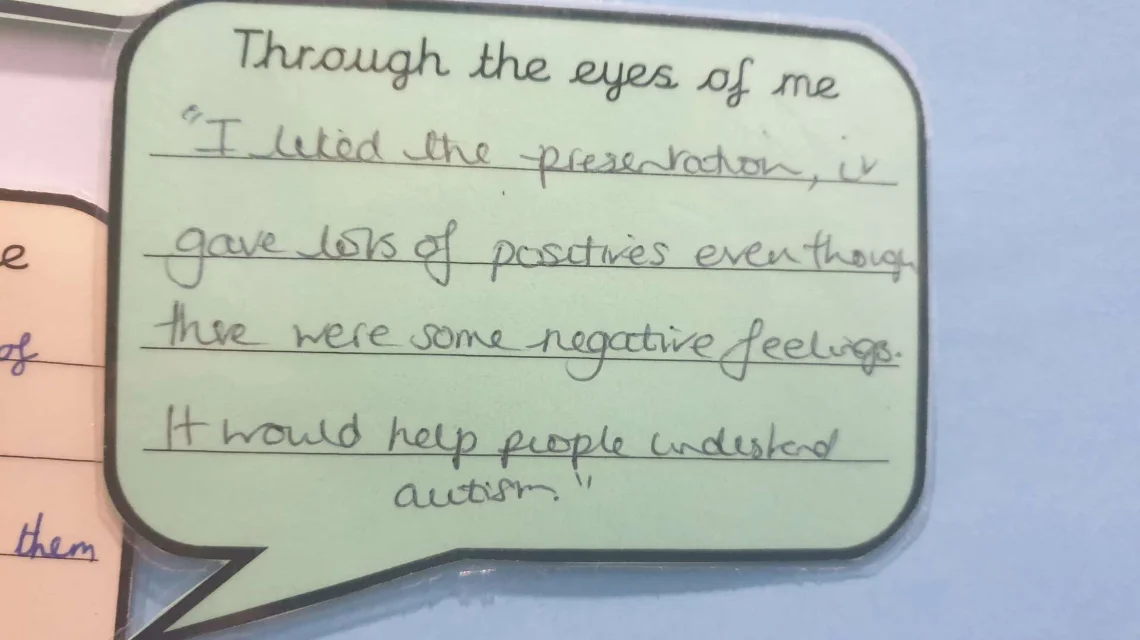 Through the eyes of me
"I liked the presentation, it
gave lots of positives even though
thre were some negative feelings.
It would help people understand
autism."
e
of
them